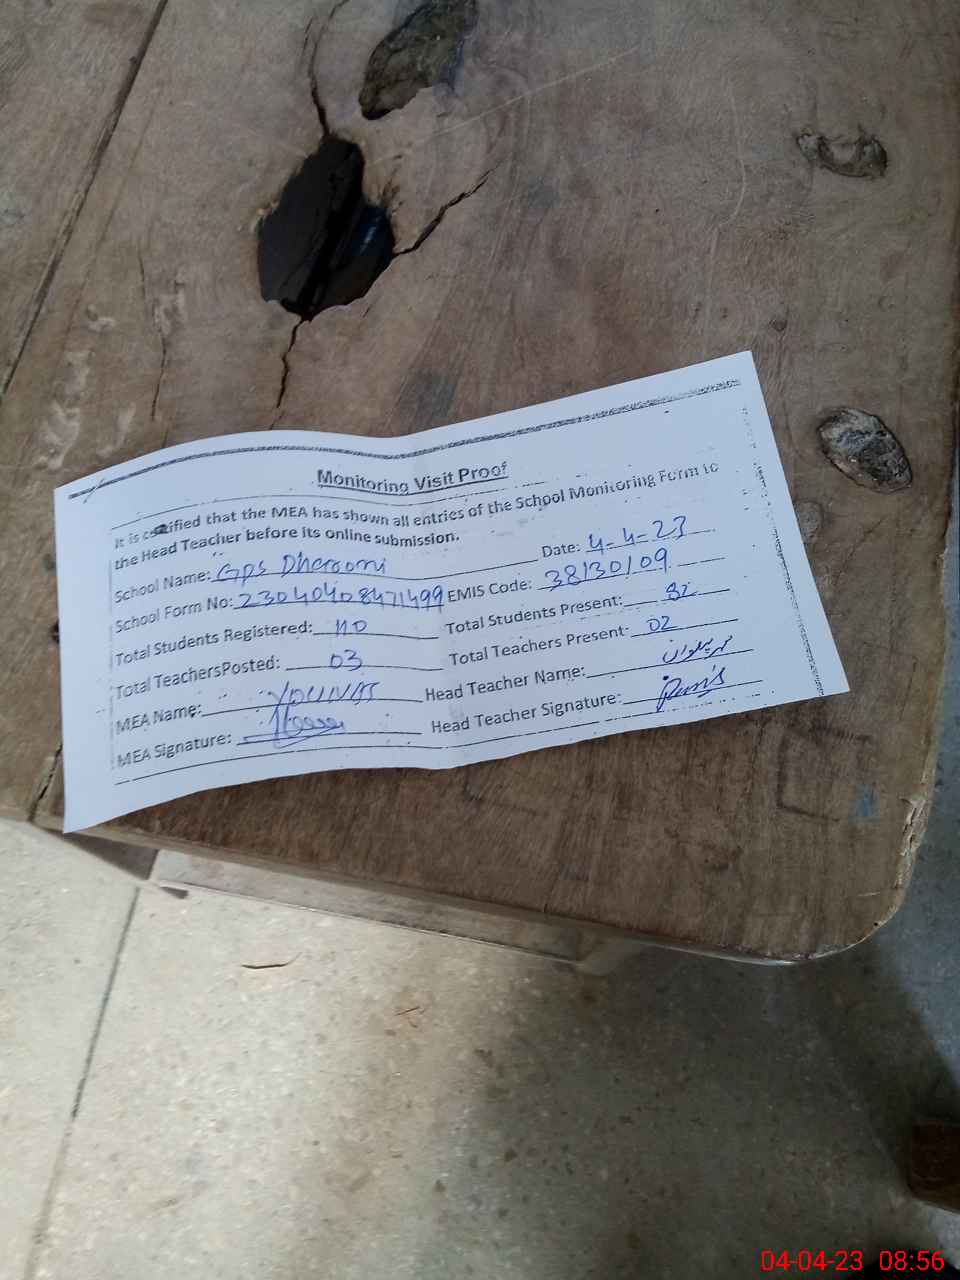 Monitoring Visit Proof
It is certified that the MEA has shown all entries of the School Monitoring Form to
the Head Teacher before its online submission.
School Name: GPS Dheroomi Date: 4-4-23
School Form No: 23040408471499 EMIS Code: 38130109
Total Students Registered: 110 Total Students Present: 82
Total TeachersPosted: 03 Total Teachers Present: 02
MEA Name: YOUNAS Head Teacher Name:
MEA Signature: Head Teacher Signature:
04-04-23 08:56